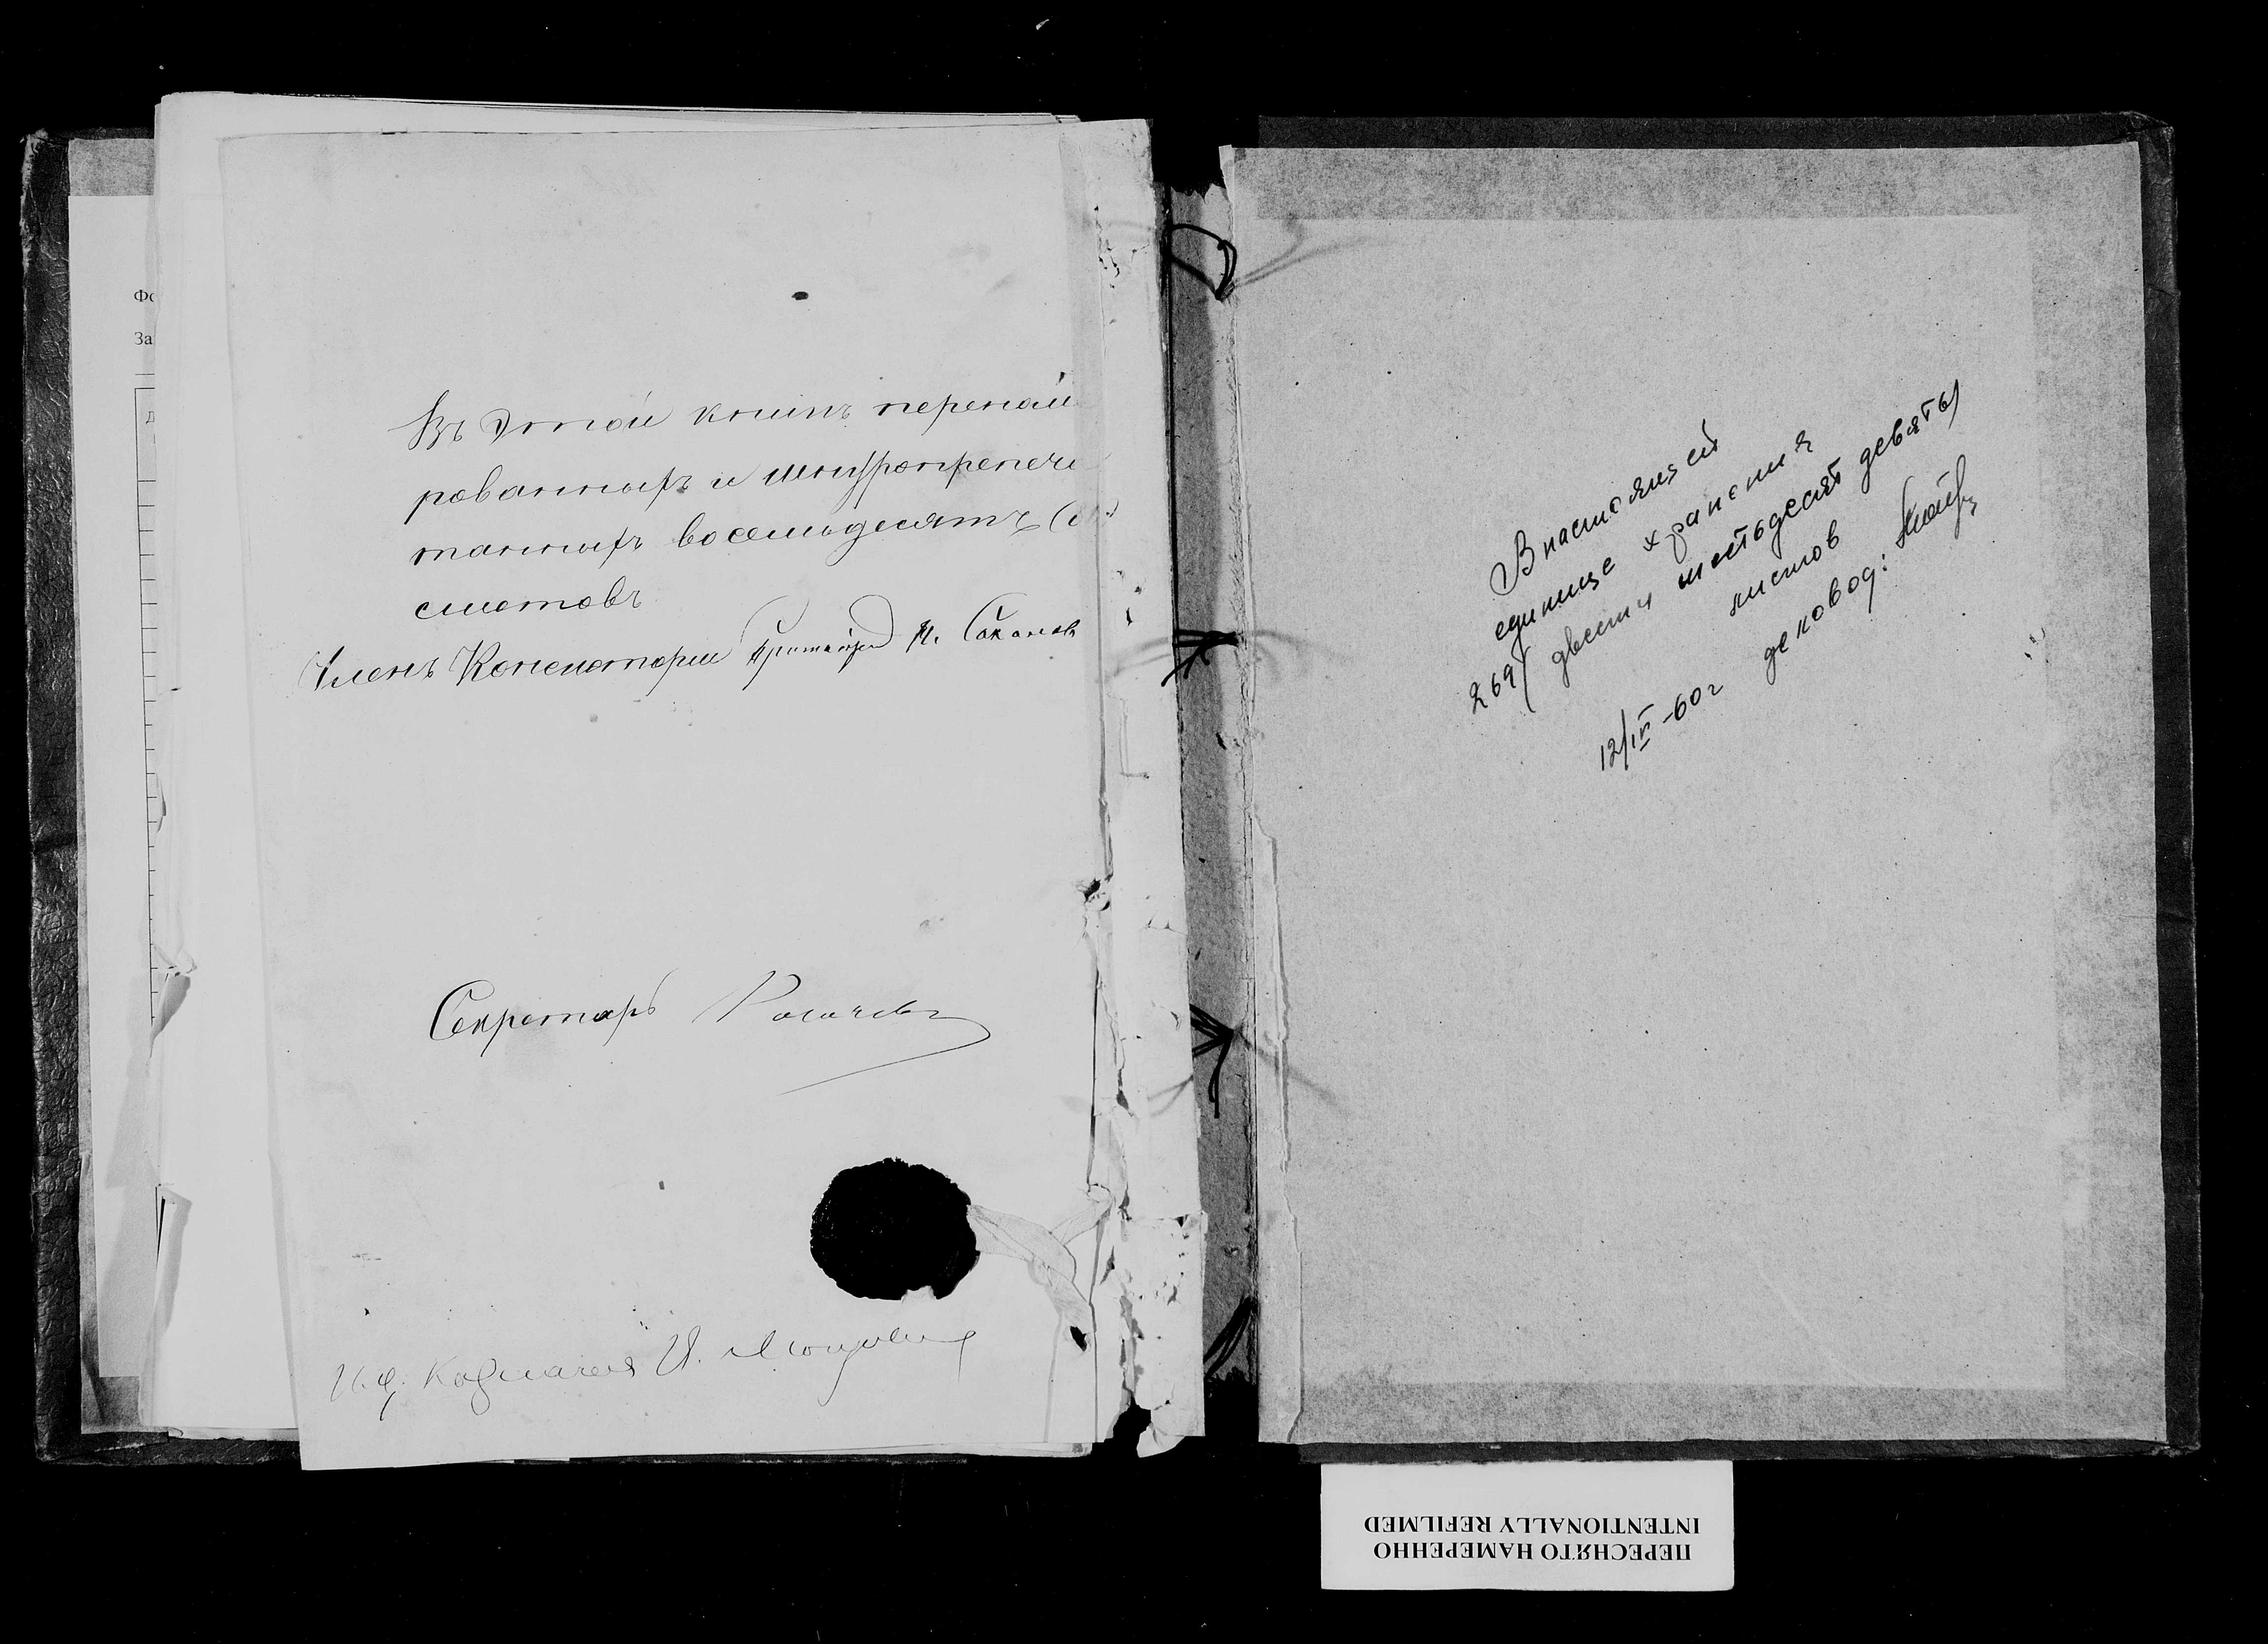 Фо
За
Въ этой книгѣ перенаме
рованныхъ и шнуропрепеча
танныхъ восемьдесятъ (80)
листовъ
Членъ Консисторіи Протоіерей
Секретарь
И. д. Казначея
В настоящей
единице хранения
269/ двести шестьдесят девять/
листов
12/IV-60г деловод:
ПЕРЕСНЯТО НАМЕРЕННО
INTENTIONALLY REFILMED